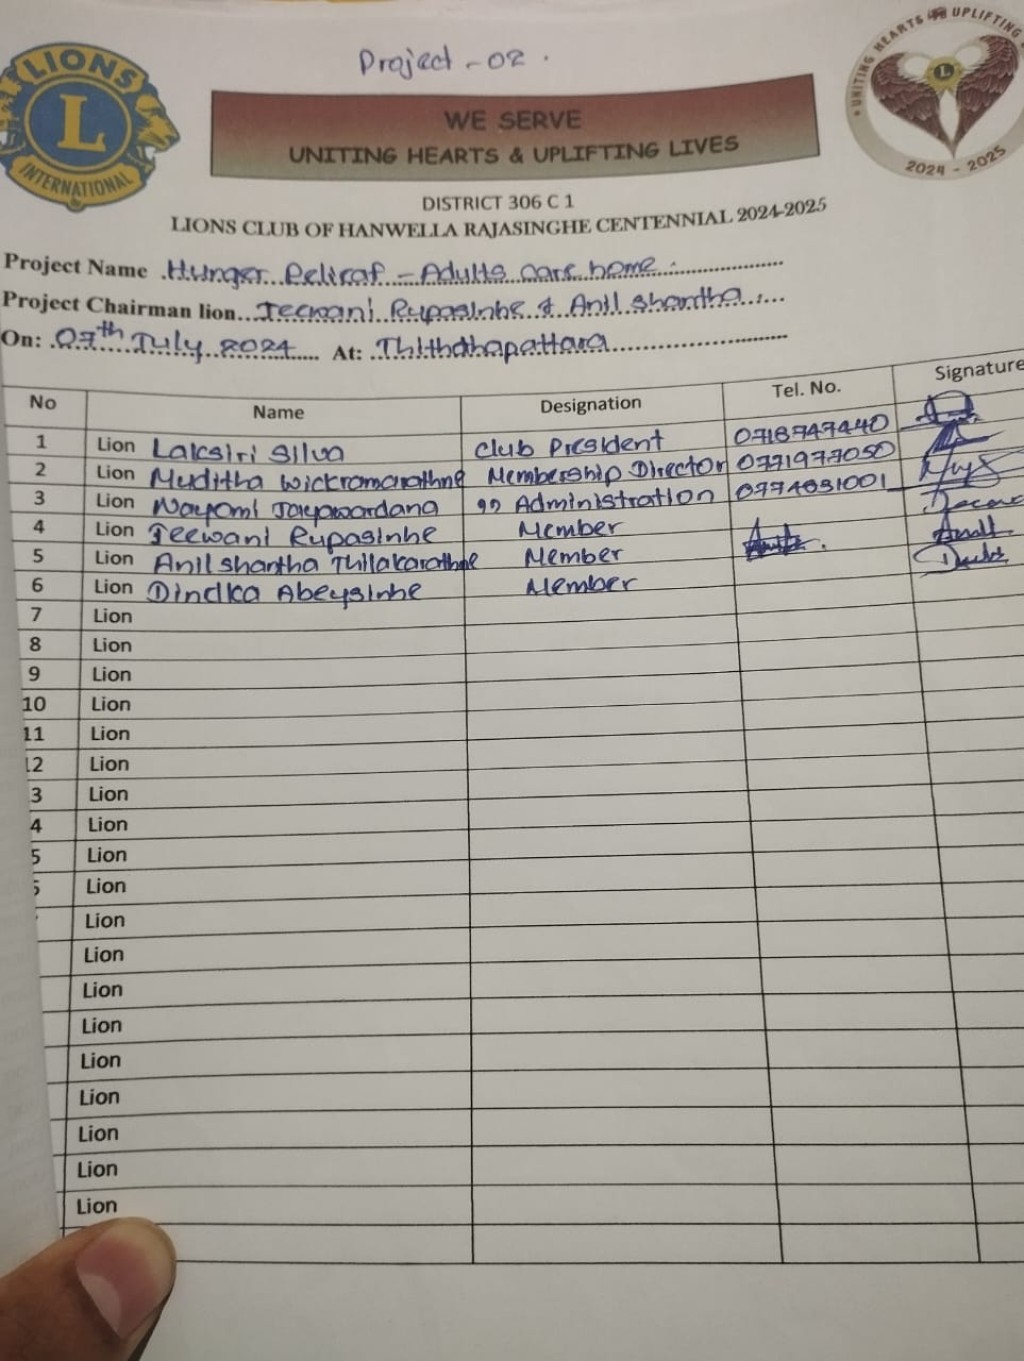 Project - 02.
LIONS
L
INTERNATIONAL
UNITING HEARTS UPLIFTING
2024 - 2025
WE SERVE
UNITING HEARTS & UPLIFTING LIVES
DISTRICT 306 C 1
LIONS CLUB OF HANWELLA RAJASINGHE CENTENNIAL 2024-2025
Project Name Hunger Peliraf - Adults care home.
Project Chairman lion Jeewani Rupasinhe & Anil shantha
On: 07th July 2024 At: Thithdhapattara
No Name Designation Tel. No. Signature
1 Lion Laksiri Silva Club President 0718747440
2 Lion Muditha Wickramarathne Membership Director 0771977050
3 Lion Nayomi Jayawardana " Administration
4 Lion Jeewani Rupasinhe Member
5 Lion Anil shantha Thilakarathne Member
6 Lion Dindka Abeysinhe Member
7 Lion
8 Lion
9 Lion
10 Lion
11 Lion
12 Lion
3 Lion
4 Lion
5 Lion
Lion
Lion
Lion
Lion
Lion
Lion
Lion
Lion
Lion
Lion